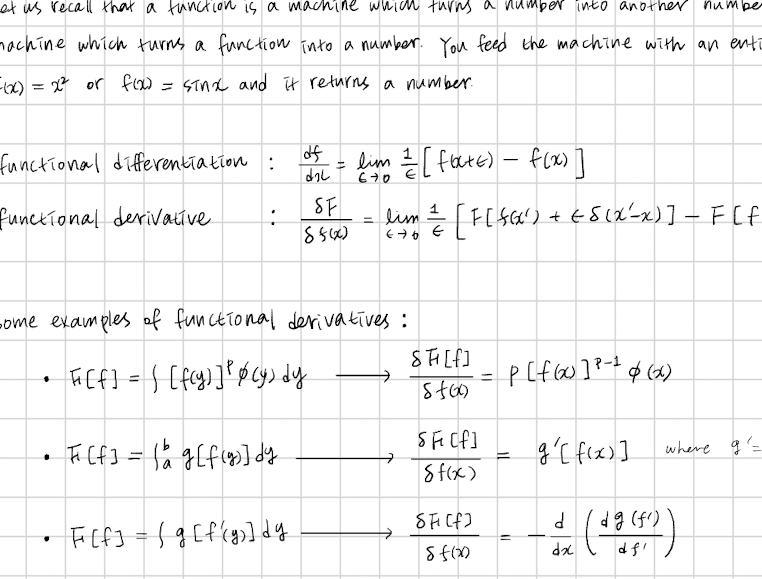 et us recall that a function is a machine which turns a number into another numbe
machine which turns a function into a number. You feed the machine with an enti
f(x) = x² or f(x) = sinx and it returns a number.
functional differentiation : df/dx = lim ε→0 1/ε [ f(x+ε) − f(x) ]
functional derivative : δF/δf(x) = lim ε→0 1/ε [ F[f(x') + ε δ(x'−x)] − F[f
some examples of functional derivatives :
• F[f] = ∫ [f(y)]ᵖ φ(y) dy ⟶ δF[f]/δf(x) = p [f(x)]ᵖ⁻¹ φ(x)
• F[f] = ∫ₐᵇ g[f(y)] dy ⟶ δF[f]/δf(x) = g'[f(x)] where g' =
• F[f] = ∫ g[f'(y)] dy ⟶ δF[f]/δf(x) = − d/dx ( dg(f')/df' )